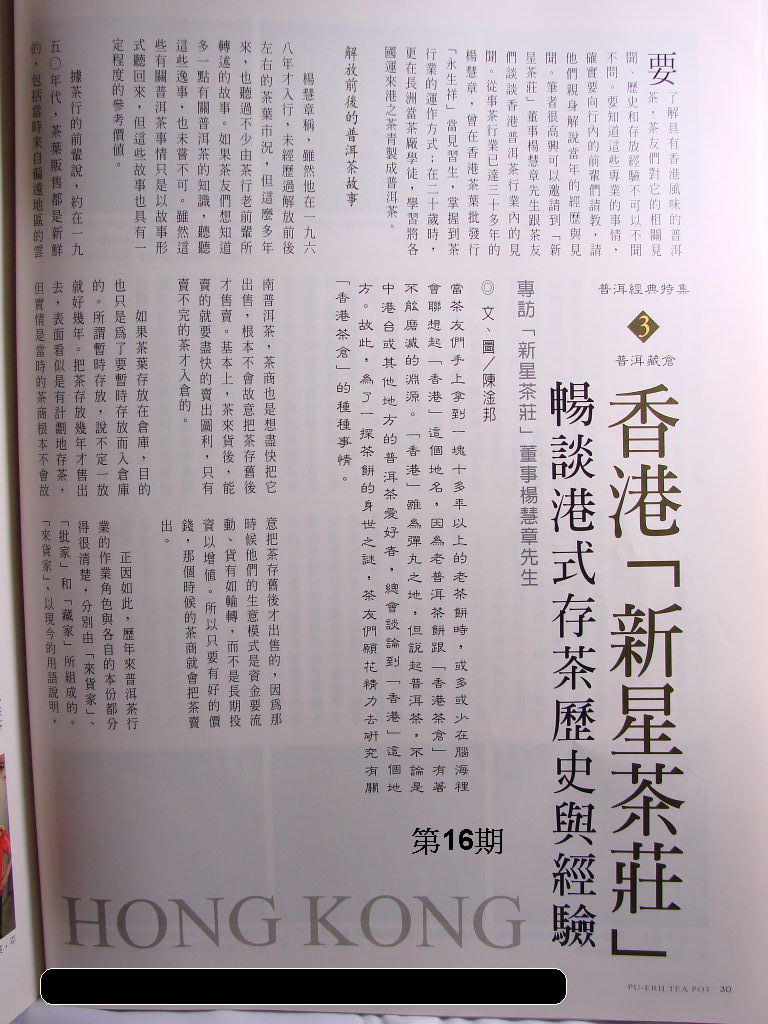 普洱經典特集
3
普洱藏倉
香港「新星茶莊」
暢談港式存茶歷史與經驗
專訪「新星茶莊」董事楊慧章先生
◎文、圖／陳淦邦
當茶友們手上拿到一塊十多年以上的老茶餅時，或多或少在腦海裡
會聯想起「香港」這個地名，因為老普洱茶餅跟「香港茶倉」有著
不能磨滅的淵源。「香港」雖為彈丸之地，但說起普洱茶，不論是
中港台或其他地方的普洱茶愛好者，總會談論到「香港」這個地
方。故此，為了一探茶餅的身世之謎，茶友們願花精力去研究有關
「香港茶倉」的種種事情。
要了解具有香港風味的普洱
茶，茶友們對它的相關見
聞、歷史和存放經驗不可以不聞
不問。要知道這些專業的事情，
確實要向行內的前輩們請教，請
他們親身解說當年的經歷與見
聞。筆者很高興可以邀請到「新
星茶莊」董事楊慧章先生跟茶友
們談談香港普洱茶行業內的見
聞。從事茶行業已達三十多年的
楊慧章，曾在香港茶葉批發行
「永生祥」當見習生，掌握到茶
行業的運作方式；在二十歲時，
更在長洲當茶廠學徒，學習將各
國運來港之茶青製成普洱茶。
解放前後的普洱茶故事
楊慧章稱，雖然他在一九六
八年才入行，未經歷過解放前後
左右的茶葉市況，但這麼多年
來，也聽過不少由茶行老前輩所
轉述的故事。如果茶友們想知道
多一點有關普洱茶的知識，聽聽
這些逸事，也未嘗不可。雖然這
些有關普洱茶事情只是以故事形
式聽回來，但這些故事也具有一
定程度的參考價值。
據茶行的前輩說，約在一九
五〇年代，茶葉販售都是新鮮
的，包括當時來自偏遠地區的雲
南普洱茶，茶商也是想盡快把它
出售，根本不會故意把茶存舊後
才售賣。基本上，茶來貨後，能
賣的就要盡快的賣出圖利，只有
賣不完的茶才入倉的。
如果茶葉存放在倉庫，目的
也只是為了要暫時存放而入倉庫
的。所謂暫時存放，說不定一放
就好幾年。把茶存放幾年才售出
去，表面看似是有計劃地存茶，
但實情是當時的茶商根本不會故
意把茶存舊後才出售的，因為那
時候他們的生意模式是資金要流
動、貨有如輪轉，而不是長期投
資以增值。所以只要有好的價
錢，那個時候的茶商就會把茶賣
出。
正因如此，歷年來普洱茶行
業的作業角色與各自的本份都分
得很清楚，分別由「來貨家」、
「批家」和「藏家」所組成的。
「來貨家」，以現今的用語說明，
第16期
HONG KONG
PU-ERH TEA POT 30